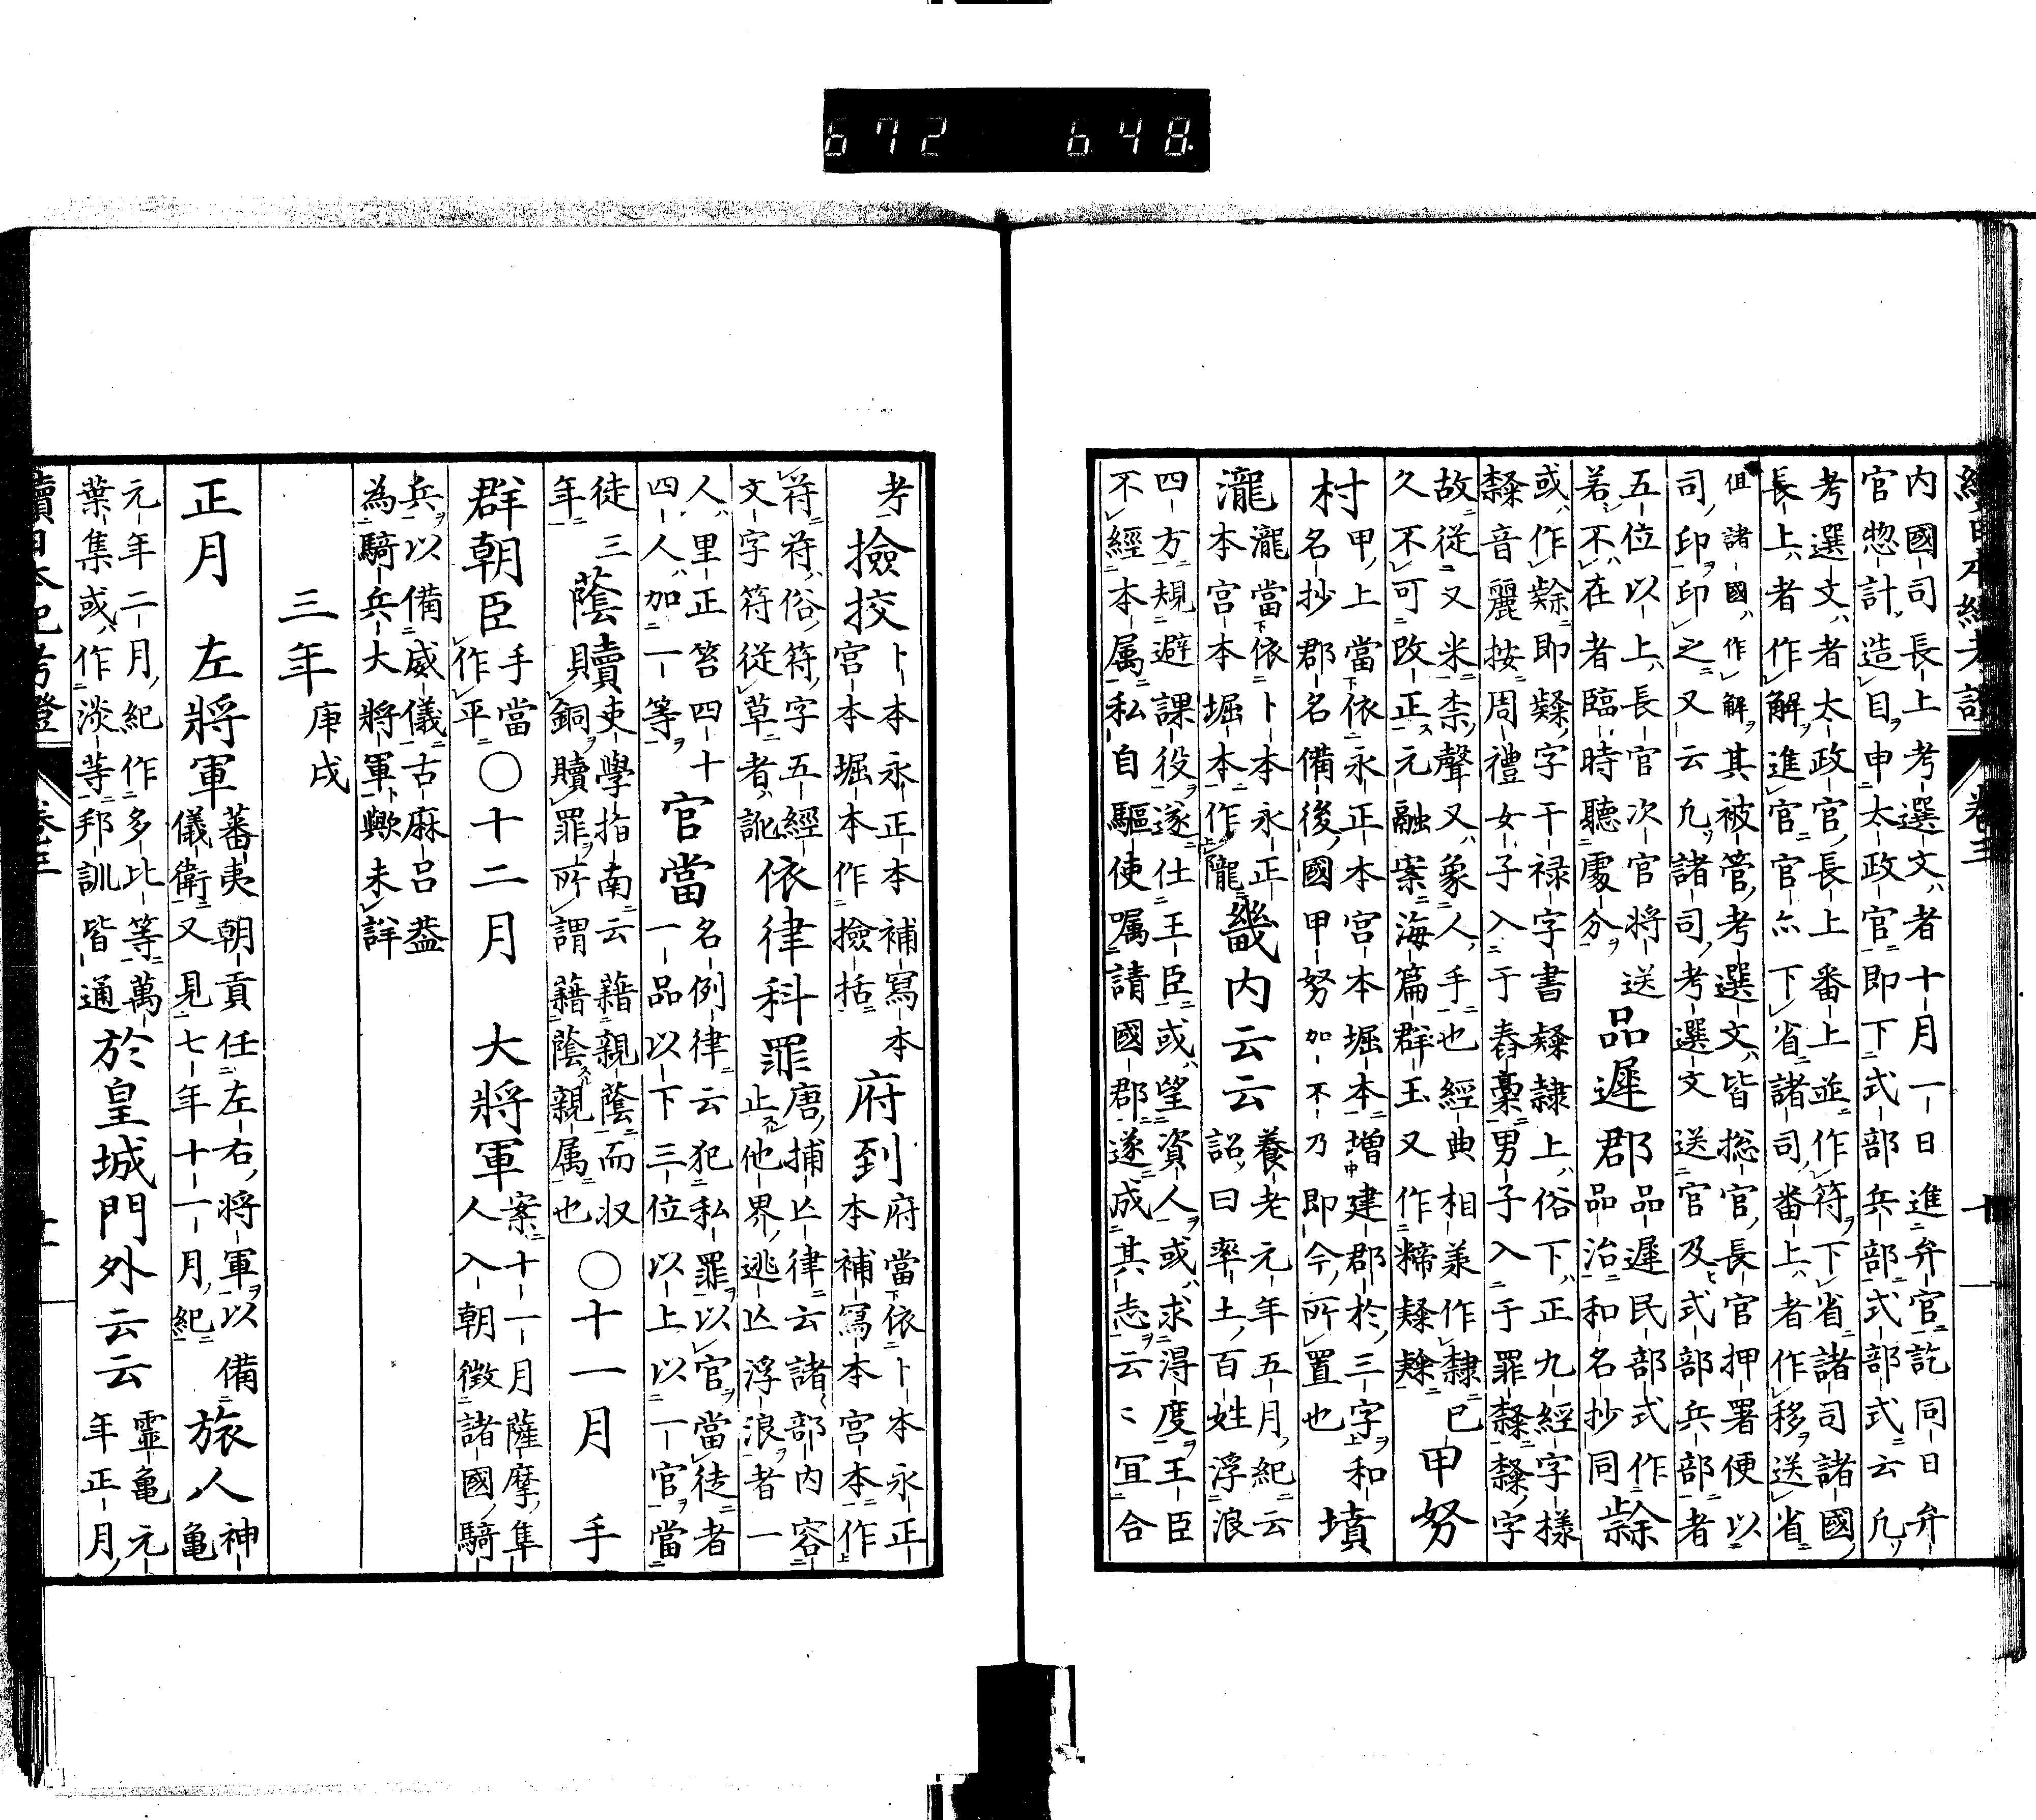 672 648
内國司長上考選文者十月一日進弁官訖同日弁
官惣計造目申太政官即下式部兵部式部式云凡
考選文者太政官長上番上並作符下省諸司諸國
長上者作解進官官亦下省諸司番上者作移送省
但諸國作解其被管考選文皆総官長官押署便以
司印印之又云凡諸司考選文送官及式部兵部者
五位以上長官次官将送
若不在者臨時聽處分
品遲郡
品遲民部式作
品治和名抄同
或作即字干禄字書上俗下正九經字様
音麗按周禮女子入于舂槀男子入于罪字
故從又米柰聲又象人手也經典相兼作隷已
久不可改正元融案海篇群玉又作
甲努
村
甲上當依永正本宮本堀本増建郡於三字和
名抄郡名備後國甲努加不乃即今所置也
墳
瀧
瀧當依卜本永正
本宮本堀本作隴
畿内云云
養老元年五月紀云
詔曰率土百姓浮浪
四方規避課役遂仕王臣或望資人或求得度王臣
不經本属私自驅使嘱請國郡遂成其志云〻宜合
考
撿挍
卜本永正本補寫本
宮本堀本作撿括
府到
府當依卜本永正
本補寫本宮本作
符符俗符字五經
文字符從草者訛
依律科罪
唐捕亾律云諸部内容
止他界逃亾浮浪者一
人里正笞四十
四人加一等
官當
名例律云犯私罪以官當徒者
一品以下三位以上以一官當
徒三
年
蔭贖
吏學指南云藉親蔭而収
銅贖罪所謂藉蔭親属也
〇十一月
手
群朝臣
手當
作平
〇十二月
大將軍
案十一月薩摩隼
人入朝徴諸國騎
兵以備威儀古麻呂葢
為騎兵大將軍歟未詳
三年
庚戌
正月
左將軍
蕃夷朝貢任左右將軍以備
儀衛又見七年十一月紀
旅人
神
亀
元年二月紀作多比等萬
葉集或作淡等邦訓皆通
於皇城門外云云
靈亀元
年正月